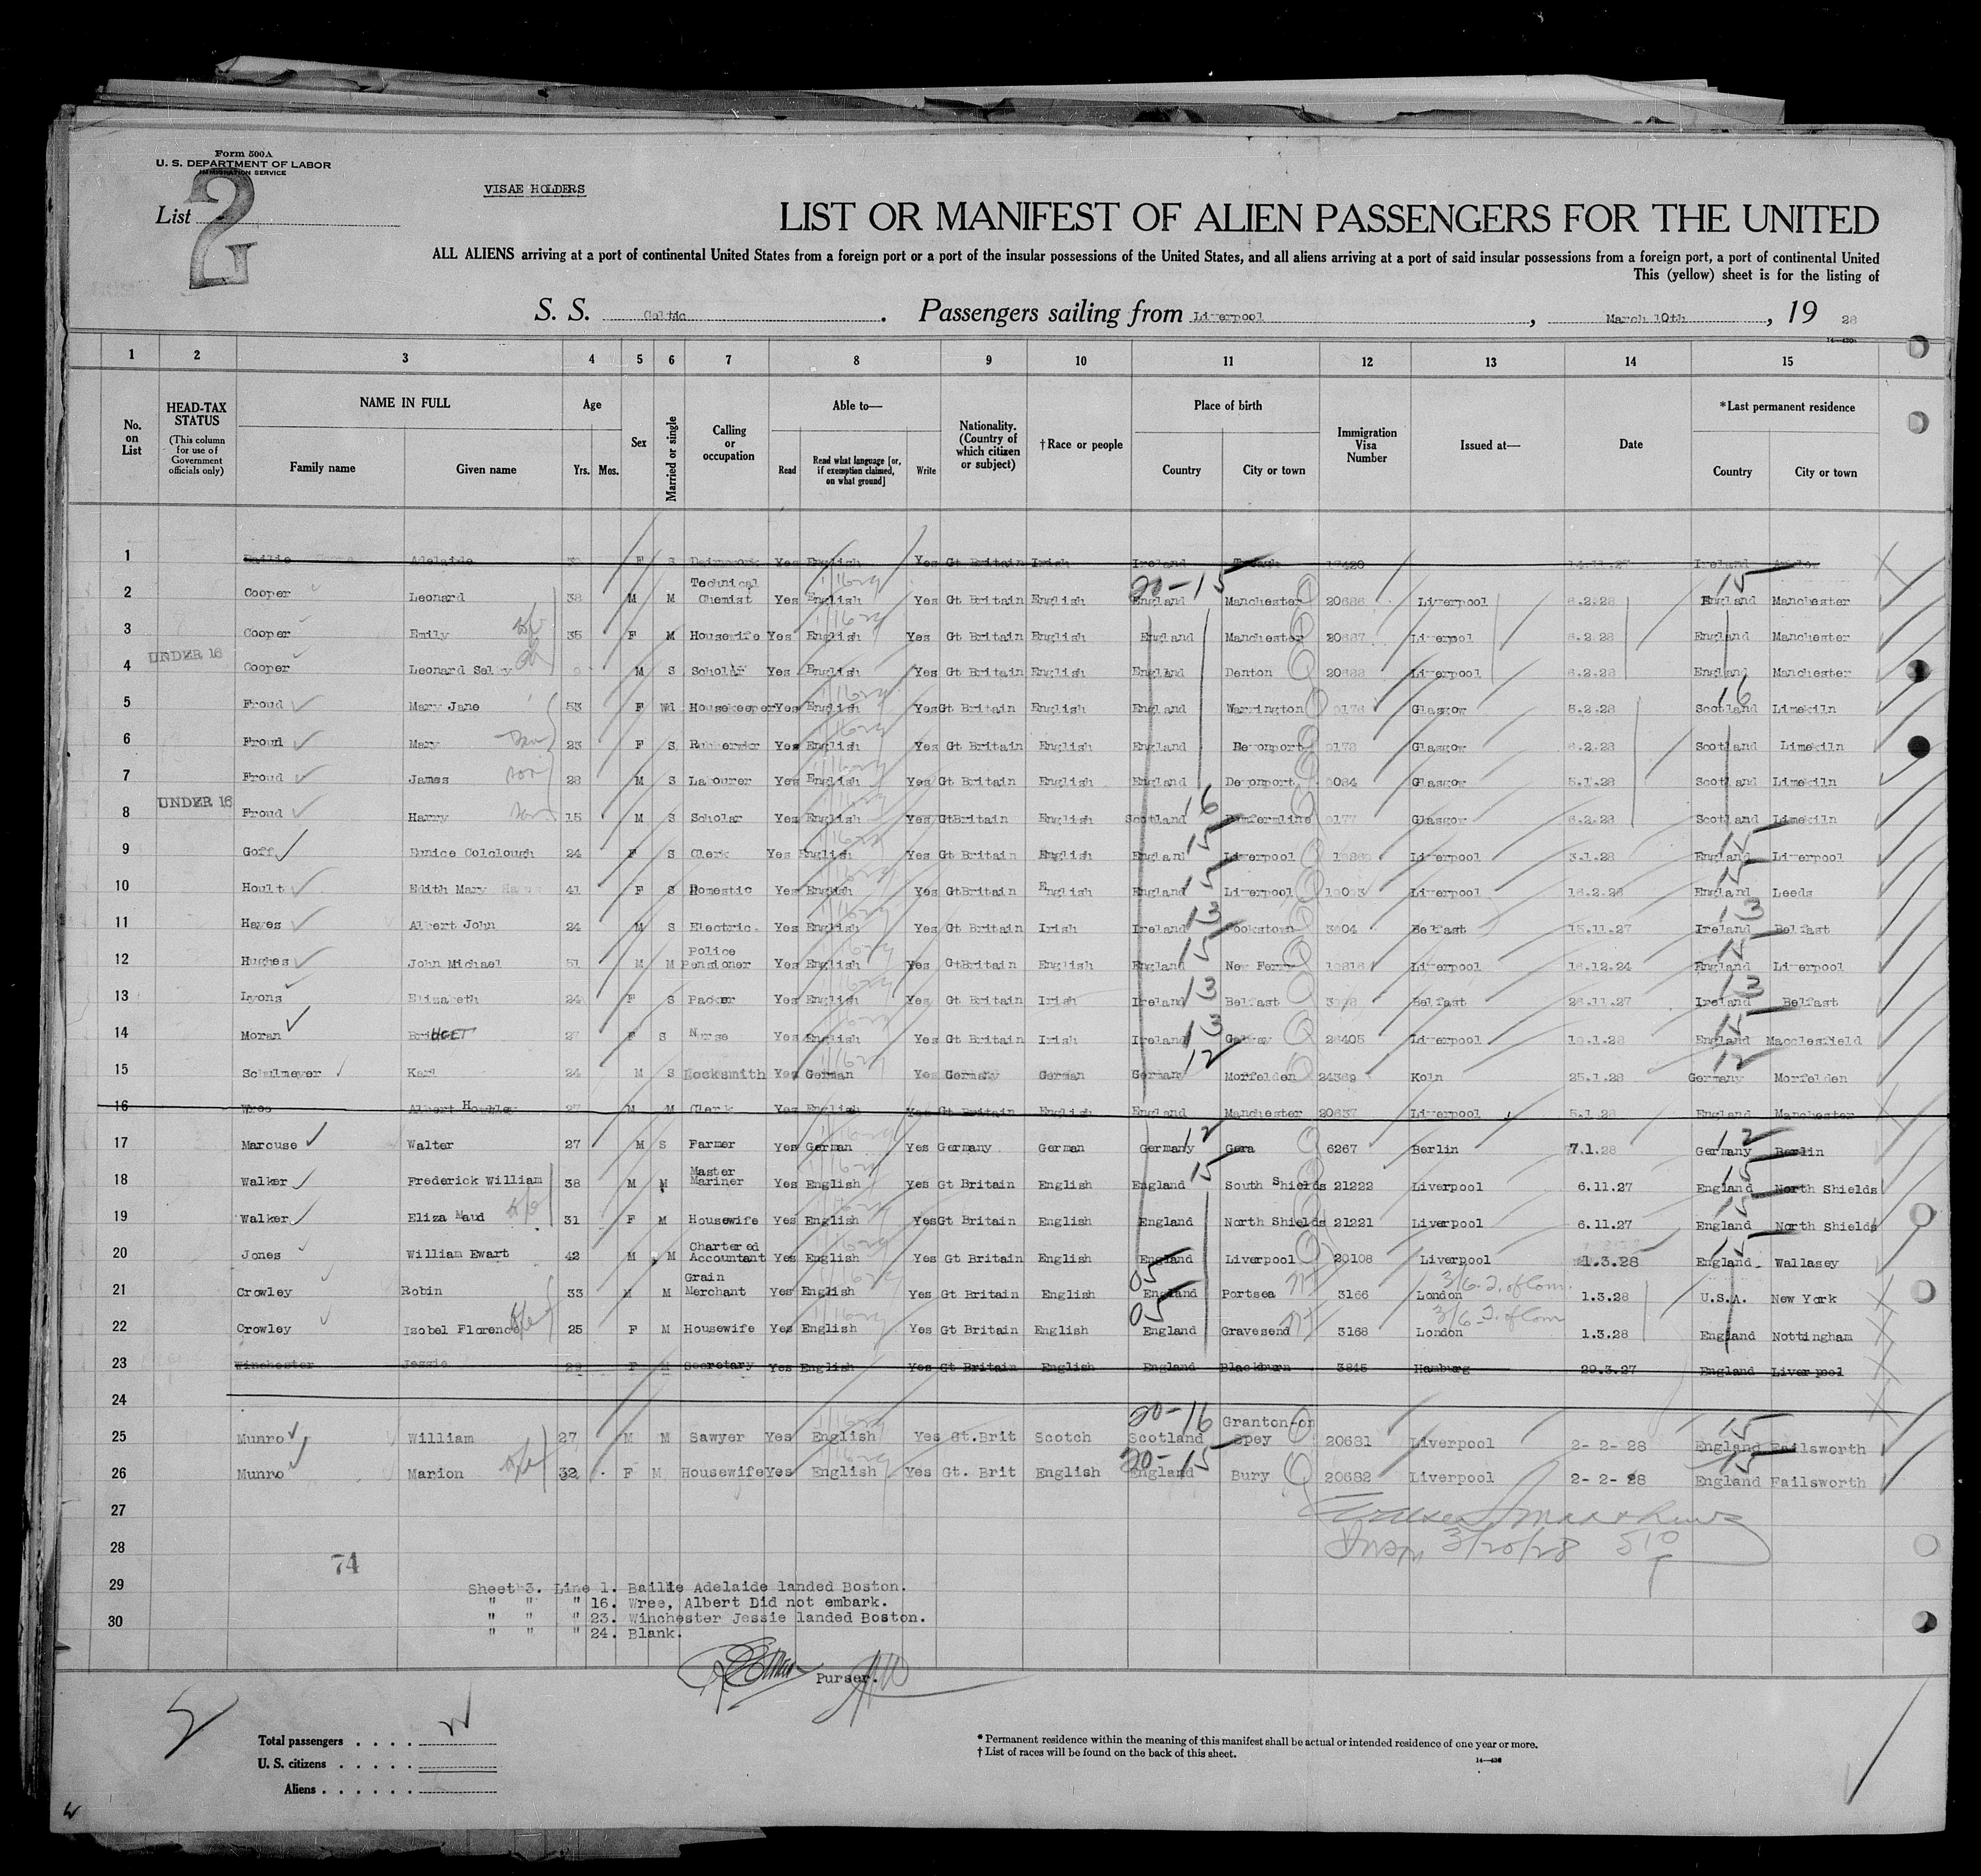 Form 500A
U. S. DEPARTMENT OF LABOR
IMMIGRATION SERVICE
VISAE HOLDERS
List 2
LIST OR MANIFEST OF ALIEN PASSENGERS FOR THE UNITED
ALL ALIENS arriving at a port of continental United States from a foreign port or a port of the insular possessions of the United States, and all aliens arriving at a port of said insular possessions from a foreign port, a port of continental United
This (yellow) sheet is for the listing of
S. S. Celtic. Passengers sailing from Liverpool, March 10th, 19 28
1 2 3 4 5 6 7 8 9 10 11 12 13 14 15
No. on List
HEAD-TAX STATUS (This column for use of Government officials only)
NAME IN FULL
Family name Given name
Age
Yrs. Mos.
Sex
Married or single
Calling or occupation
Able to—
Read Read what language [or, if exemption claimed, on what ground] Write
Nationality. (Country of which citizen or subject)
†Race or people
Place of birth
Country City or town
Immigration Visa Number
Issued at—
Date
*Last permanent residence
Country City or town
1 Bailie Adelaide F S Dairywork Yes English Yes Gt Britain Irish Ireland 14.11.27 Ireland
2 Cooper Leonard 38 M M Technical Chemist Yes English Yes Gt Britain English England 20-15 Manchester 20686 Liverpool 6.2.28 England 15 Manchester
3 Cooper Emily 35 F M Housewife Yes English Yes Gt Britain English England Manchester 20687 Liverpool 6.2.28 England Manchester
4 UNDER 16 Cooper Leonard Selby 9 M S Scholar Yes English Yes Gt Britain English England Denton 20688 Liverpool 6.2.28 England Manchester
5 Froud Mary Jane 53 F Wd Housekeeper Yes English Yes Gt Britain English England Warrington Glasgow 6.2.28 Scotland 16 Limekiln
6 Froud Mary 23 F S Yes English Yes Gt Britain English England Devonport Glasgow 6.2.28 Scotland Limekiln
7 Froud James son 28 M S Labourer Yes English Yes Gt Britain English England Devonport Glasgow 5.1.28 Scotland Limekiln
8 UNDER 16 Froud Harry son 15 M S Scholar Yes English Yes GtBritain English Scotland 16 Dumfermline Glasgow 6.2.28 Scotland Limekiln
9 Goff Eunice Colclough 24 F S Clerk Yes English Yes Gt Britain English England 15 Liverpool Liverpool 3.1.28 England 15 Liverpool
10 Hoult Edith Mary 41 F S Domestic Yes English Yes GtBritain English England 15 Liverpool Liverpool 16.2.28 England 15 Leeds
11 Hayes Albert John 24 M S Electric. Yes English Yes Gt Britain Irish Ireland 13 Cookstown Belfast 15.11.27 Ireland 13 Belfast
12 Hughes John Michael 51 M M Police Pensioner Yes English Yes GtBritain English England 15 New Ferry Liverpool 16.12.24 England 15 Liverpool
13 Lyons Elizabeth 24 F S Packer Yes English Yes Gt Britain Irish Ireland 13 Belfast Belfast 26.11.27 Ireland 13 Belfast
14 Moran BridGET 27 F S Nurse Yes English Yes Gt Britain Irish Ireland 13 Galway 26405 Liverpool England 15 Macclesfield
15 Schulmeyer Karl 24 M S Locksmith Yes German Yes Germany German Germany 12 Morfelden 24369 Koln 25.1.28 Germany 12 Morfelden
16 Wree Albert 27 M M Clerk Yes English Yes Gt Britain English England Manchester 20637 Liverpool 5.1.28 England Manchester
17 Marcuse Walter 27 M S Farmer Yes German Yes Germany German Germany 12 Gera 6267 Berlin 7.1.28 Germany 12 Berlin
18 Walker Frederick William 38 M M Master Mariner Yes English Yes Gt Britain English England 15 South Shields 21222 Liverpool 6.11.27 England 15 North Shields
19 Walker Eliza Maud 31 F M Housewife Yes English Yes Gt Britain English England North Shields 21221 Liverpool 6.11.27 England 15 North Shields
20 Jones William Ewart 42 M M Chartered Accountant Yes English Yes Gt Britain English England Liverpool 20108 Liverpool 1.3.28 England 15 Wallasey
21 Crowley Robin 33 M M Grain Merchant Yes English Yes Gt Britain English England 05 Portsea 3166 London 3/6.2. of Com. 1.3.28 U.S.A. New York
22 Crowley Isobel Florence 25 F M Housewife Yes English Yes Gt Britain English England 05 Gravesend 3168 London 3/6.2. of Com 1.3.28 England Nottingham
23 Winchester Jessie 29 F M Secretary Yes English Yes Gt Britain English England Blackburn 3845 Hamburg 29.3.27 England Liverpool
24
25 Munro William 27 M M Sawyer Yes English Yes Gt.Brit Scotch Scotland 20-16 Granton-on Spey 20681 Liverpool 2-2-28 England 15 Failsworth
26 Munro Marion 32 F M Housewife Yes English Yes Gt. Brit English England 20-15 Bury 20682 Liverpool 2-2-28 England 15 Failsworth
27
28
3/20/28
74
29 Sheet 3. Line 1. Bailie Adelaide landed Boston.
" " " 16. Wree, Albert Did not embark.
30 " " " 23. Winchester Jessie landed Boston.
" " " 24. Blank.
Purser.
Total passengers
U. S. citizens
Aliens
* Permanent residence within the meaning of this manifest shall be actual or intended residence of one year or more.
† List of races will be found on the back of this sheet.